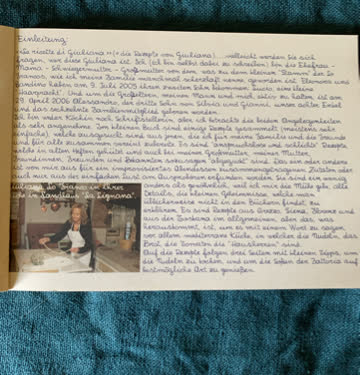 Einleitung
"Le ricette di Giuliana" (die Rezepte von Giuliana) ... vielleicht werden Sie sich
fragen, wer diese Giuliana ist. Ich (ich bin selbst dabei zu schreiben) bin die Ehefrau -
Mama - Schwiegermutter - Großmutter von dem, was zu dem kleinen "Stamm" der Lo
wie ich meine Familie manchmal scherzhaft nenne, geworden ist. Eleonora und
haben am 9. Juli 2005 ihren zweiten Sohn bekommen: eine kleine
Und um die Großeltern, meinen Mann und mich, aktiv zu halten, ist am
29. April 2006 Alessandro, der dritte Sohn von Silvia und Gianni, unser achter Enkel
und das sechzehnte Familienmitglied geboren worden.
Ich bin weder Köchin noch Schriftstellerin, aber ich betrachte die beiden Angelegenheiten
als sehr angenehm. In kleinen Buch sind einige Rezepte gesammelt (meistens sehr
einfache), welche ausgesucht sind aus jenen, die ich für meine Familie und die Freunde
und für alle zusammen bereits zubereite. Es sind "anspruchslose und schlichte" Rezepte
welche in alten Heften gehütet und auch bei meiner Großmutter, meiner Mutter,
Freundinnen, Freunden und Bekannten sozusagen "abgeguckt" sind. Das ein oder andere
ist von mir aus für ein improvisiertes Abendessen zusammengetragenen Zutaten oder
auch nur aus der einfachen Lust am Ausprobieren erfunden worden. Sie sind ein wenig
Giuliana Lo Bianco in ihrer
anders als gewöhnlich, weil ich mir die Mühe gebe, alle
Details, die kleinen Geheimnisse, welche man
üblicherweise nicht in den Büchern findet, zu
erklären. Es sind Rezepte aus Brozzo, Siena, Florenz und
aus der Toskana im allgemeinen, aber das, was
herauskommt, ist, um es mit einem Wort zu sagen,
vor allem mediterrane Küche, in welcher die Nudeln, das
Brot, die Tomaten die "Hausherren" sind.
Auf die Rezepte folgen drei Seiten mit kleinen Tipps, um
die Nudeln zu kochen, und um die Soßen der Fattoria auf
bestmögliche Art zu genießen.